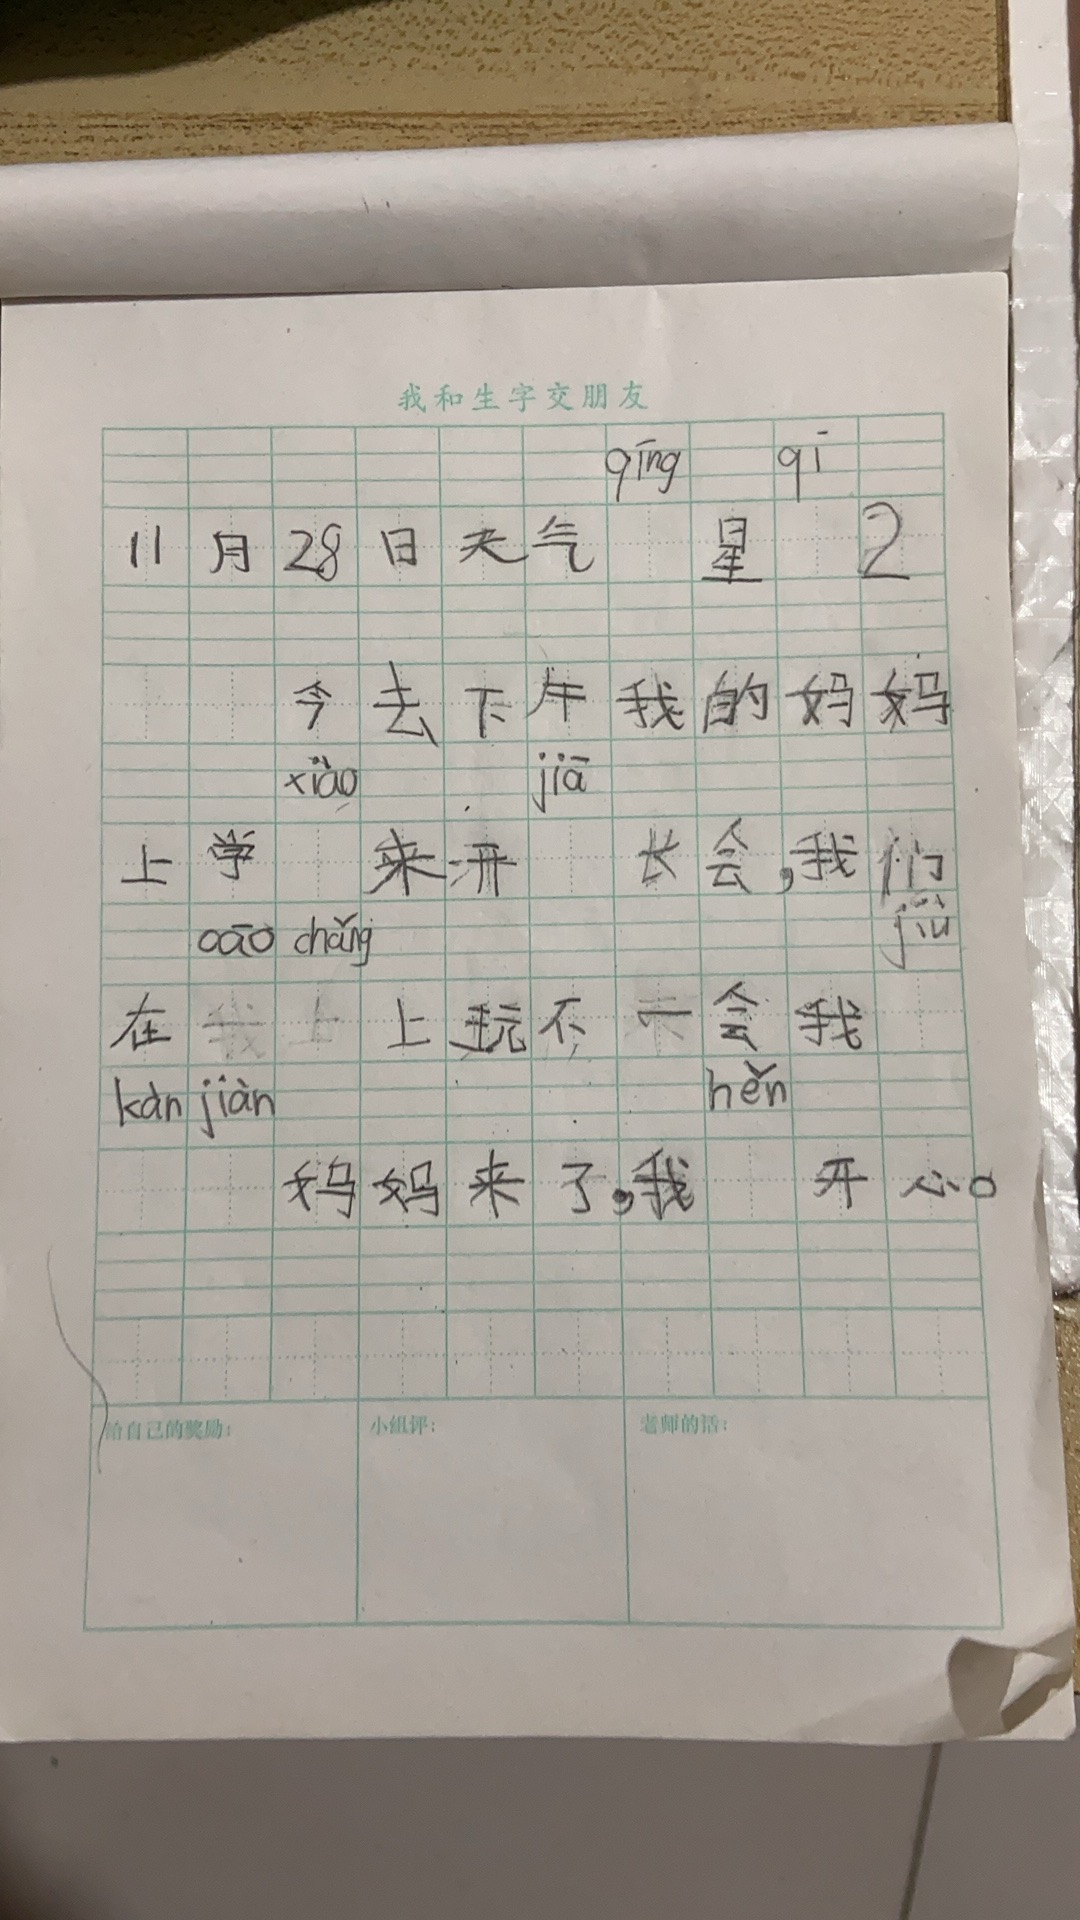 我和生字交朋友
qīng qī
11月28日天气 星 2
今去下午我的妈妈
xiào jiā
上学 来开 长会,我们
cāo chǎng jiù
在 上玩不会我
kàn jiàn hěn
妈妈来了,我 开心。
给自己的奖励: 小组评: 老师的话: